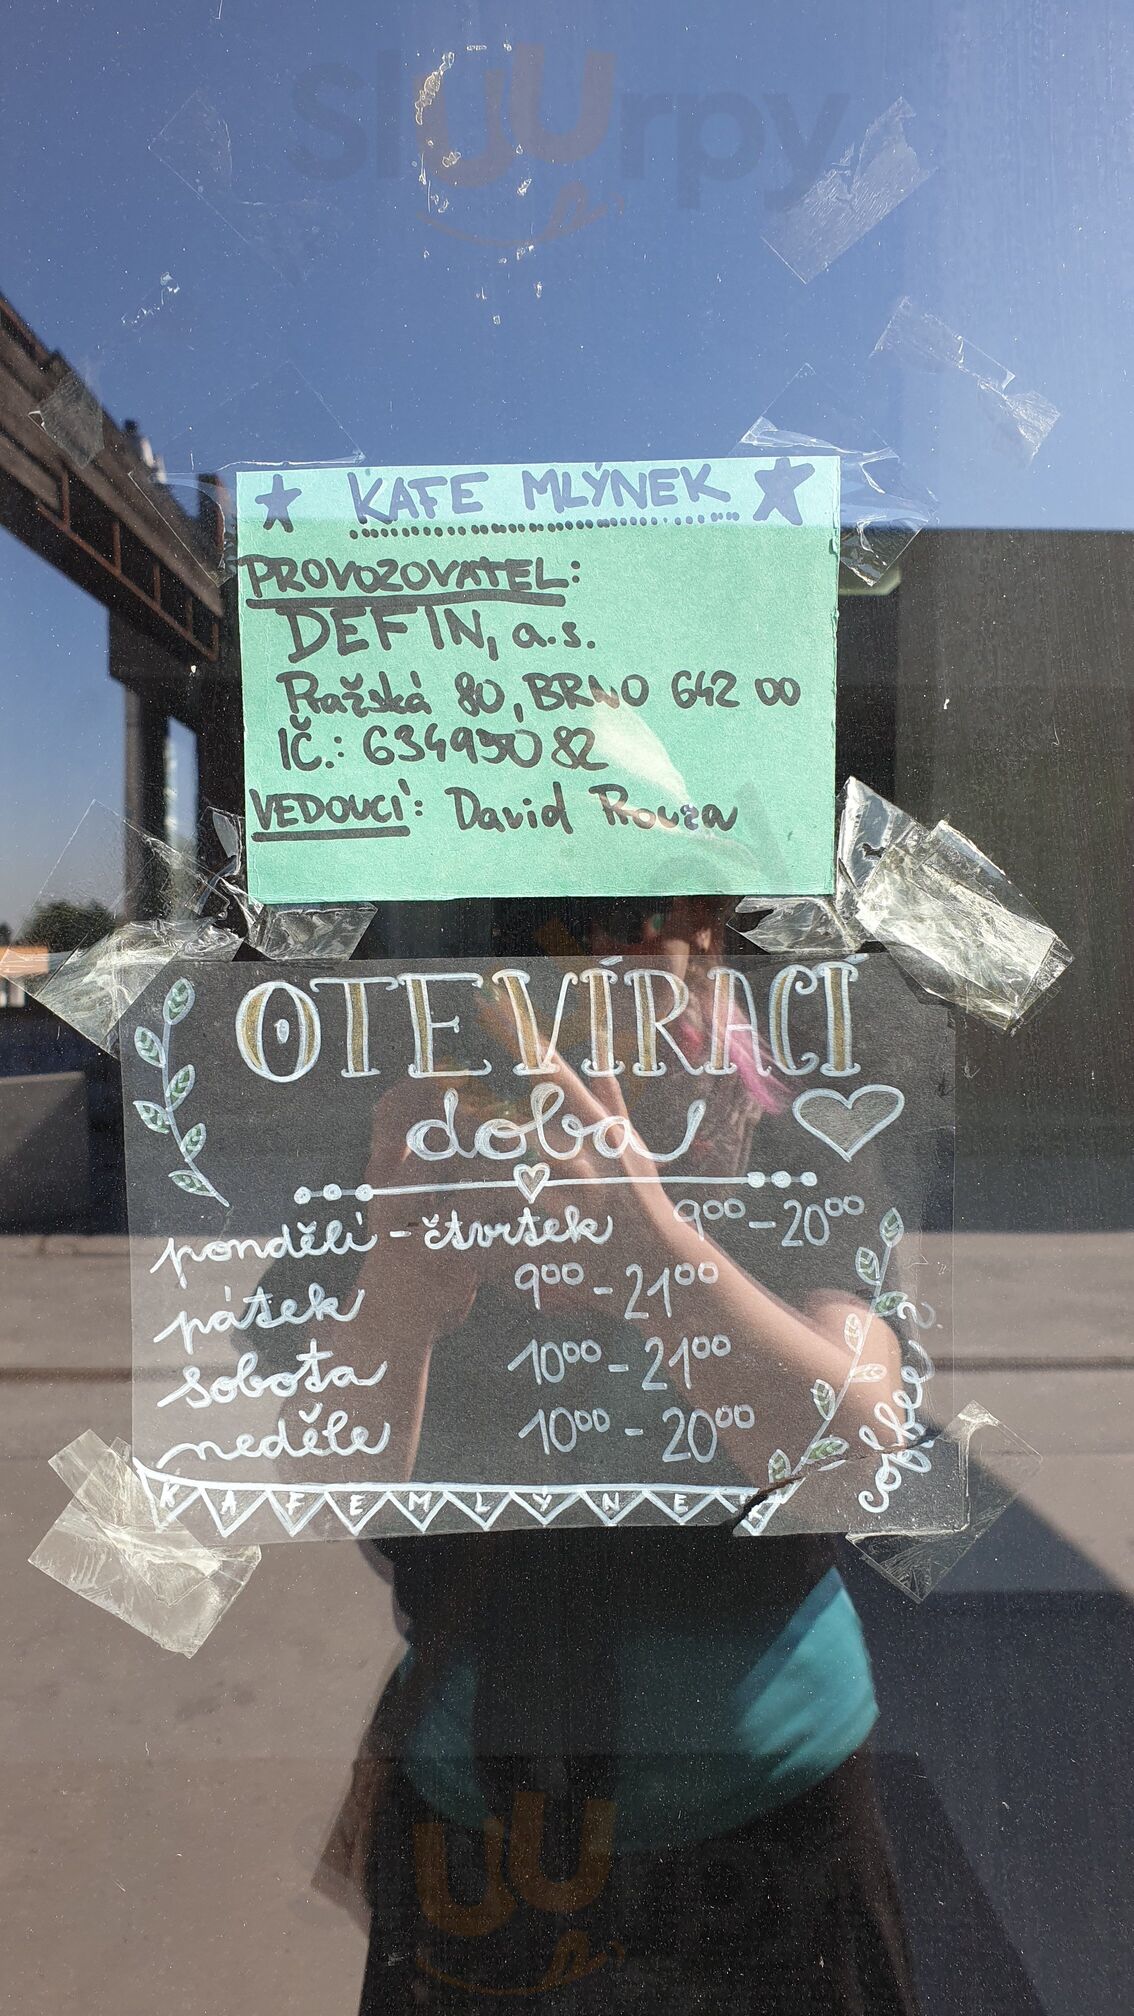 Sluurpy
KAFE MLÝNEK
PROVOZOVATEL:
DEFIN, a.s.
Pražská 80, BRNO 642 00
IČ.: 63495082
VEDOUCÍ: David Prouza
OTEVÍRACÍ
doba
pondělí - čtvrtek 9⁰⁰ - 20⁰⁰
pátek 9⁰⁰ - 21⁰⁰
sobota 10⁰⁰ - 21⁰⁰
neděle 10⁰⁰ - 20⁰⁰
coffee?
KAFE MLÝNEK
Sluurpy